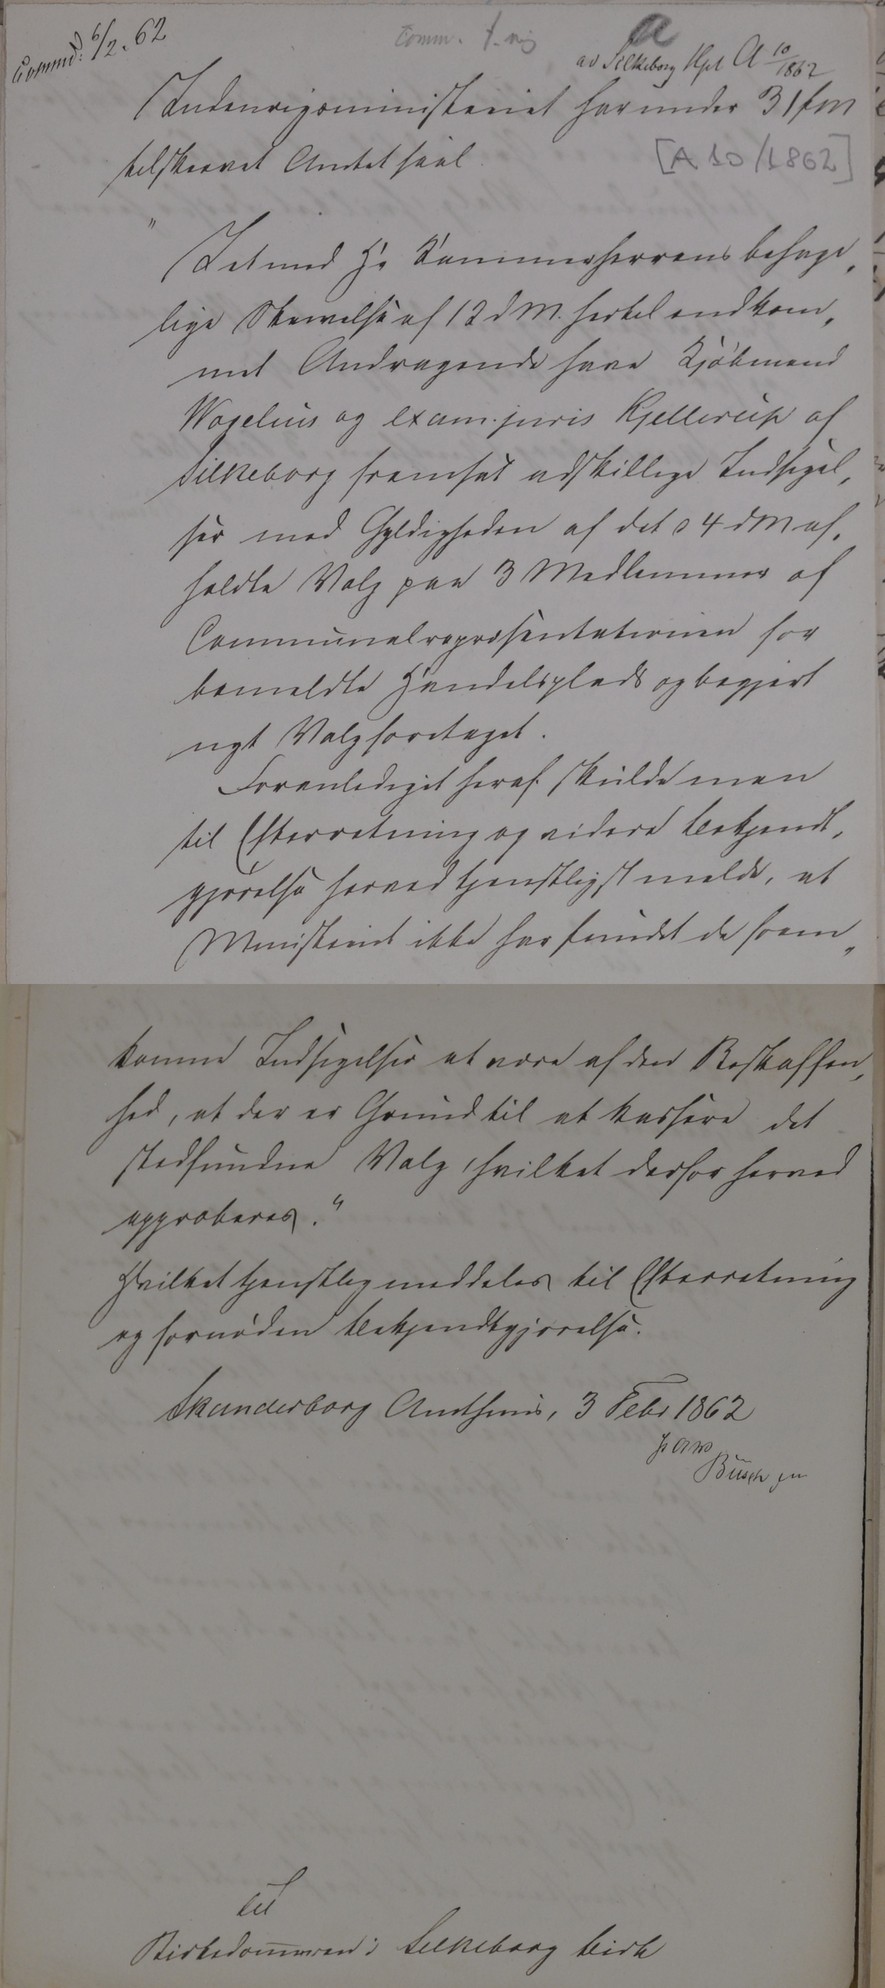 Commd: 6/2. 62
Comm.
a
ad Silkeborg Hpl A 10/1862
Indenrigsministeriet har under 31 f M
tilskrevet Amtet saal.
[A 10/1862]
"Idet med Hr Kammerherrens behage,
lige Skrivelse af 12 d M. hertil indkom,
met Andragende have Kjøbmand
Wogelius og exam. juris Kjellerup af
Silkeborg fremsat adskillige Indsigel,
ser mod Gyldigheden af det d 4 d M af,
holdte Valg paa 3 Medlemmer af
Communalrepræsentationen for
bemeldte Handelsplads og begjert
nyt Valg foretaget.
Foranlediget heraf skulde man
til Efterretning og videre Bekjendt,
gjørelse herved tjenstligst melde, at
Ministeriet ikke har fundet de frem,
komne Indsigelser at være af den Beskaffen,
hed, at der er Grund til at kassere det
stedfundne Valg, hvilket derfor herved
approberes."
Hvilket tjenstlig meddeles til Efterretning
og fornøden Bekjendtgjørelse.
Skanderborg Amthuus, 3 Febr 1862
Busch
Til
Birkedommeren i Silkeborg Birk